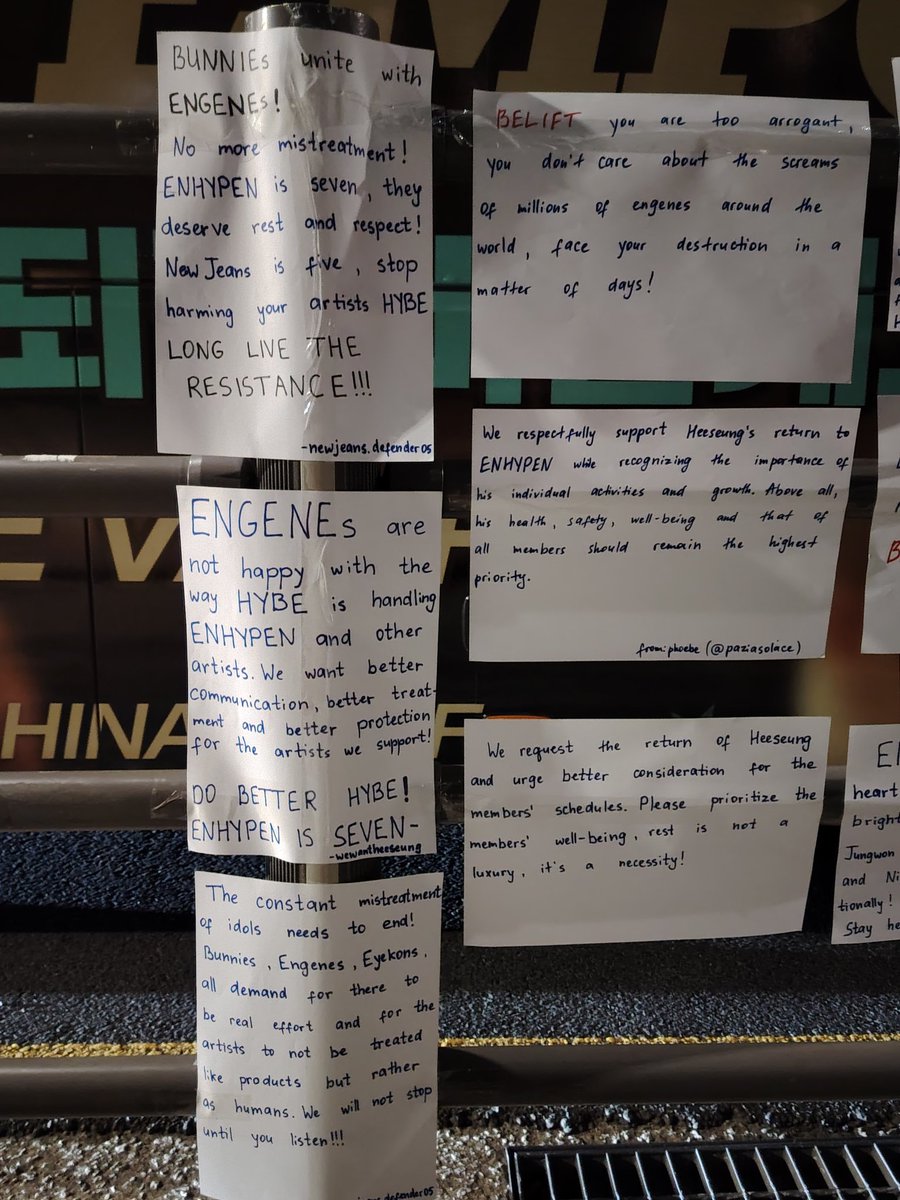 BUNNIEs unite with
ENGENEs!
No more mistreatment!
ENHYPEN is seven, they
deserve rest and respect!
New Jeans is five, stop
harming your artists HYBE
LONG LIVE THE
RESISTANCE!!!
-newjeans.defender05
ENGENEs are
not happy with the
way HYBE is handling
ENHYPEN and other
artists. We want better
communication, better treat-
ment and better protection
for the artists we support!
DO BETTER HYBE!
ENHYPEN IS SEVEN-
-wewantheeseung
The constant mistreatment
of idols needs to end!
Bunnies, Engenes, Eyekons,
all demand for there to
be real effort and for the
artists to not be treated
like products but rather
as humans. We will not stop
until you listen!!!
BELIFT you are too arrogant,
you don't care about the screams
of millions of engenes around the
world, face your destruction in a
matter of days!
We respectfully support Heeseung's return to
ENHYPEN while recognizing the importance of
his individual activities and growth. Above all,
his health, safety, well-being and that of
all members should remain the highest
priority.
from: phoebe (@paziasolace)
We request the return of Heeseung
and urge better consideration for the
members' schedules. Please prioritize the
members' well-being, rest is not a
luxury, it's a necessity!
heart
bright
Jungwon
and Ni
tionally!
Stay he
HINA